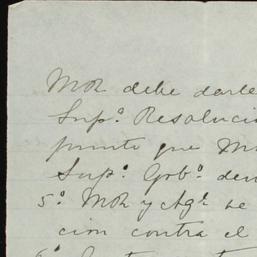 MOR debe darle
Sup.º Resolució
punto que M
Sup.º Gob.º den
5.º MOR y Agl se
ción contra el
6.º